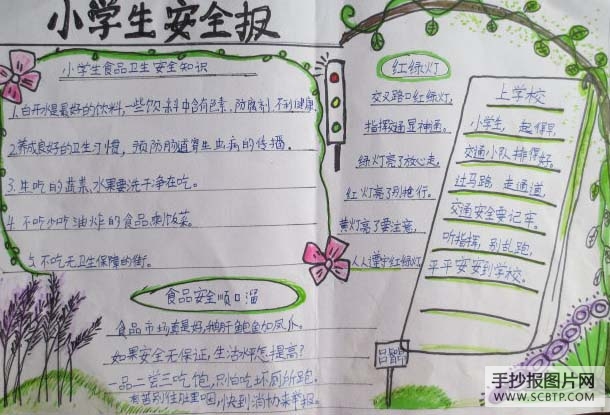 小学生安全报
小学生食品卫生安全知识
1.白开水是最好的饮料,一些饮料中含有色素、防腐剂,不利健康
2.养成良好的卫生习惯,预防肠道寄生虫病的传播。
3.生吃的蔬菜,水果要洗干净在吃。
4.不吃少吃油炸的食品剩饭菜。
5.不吃无卫生保障的街。
食品安全顺口溜
食品市场真是好,鹅肝鲍鱼加凤爪。
如果安全无保证,生活水平怎提高?
一品二尝三吃饱,只怕吃坏厕所跑。
小快到消协来举报。
红绿灯
交叉路口红绿灯,
指挥交通显神通。
绿灯亮了放心走,
红灯亮了别抢行。
黄灯亮了要注意,
人人遵守红绿灯
上学校
小学生,起得早,
交通小队排得好。
过马路,走通道,
交通安全要记牢。
听指挥,别乱跑,
平平安安到学校。
手抄报图片网
WWW.SCBTP.COM